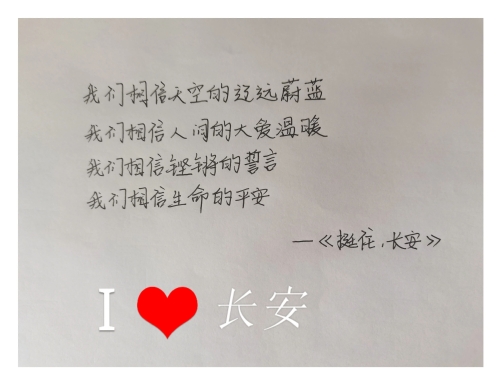 我们相信天空的辽远蔚蓝
我们相信人间的大爱温暖
我们相信铿锵的誓言
我们相信生命的平安
—《挺住，长安》
I ❤ 长安